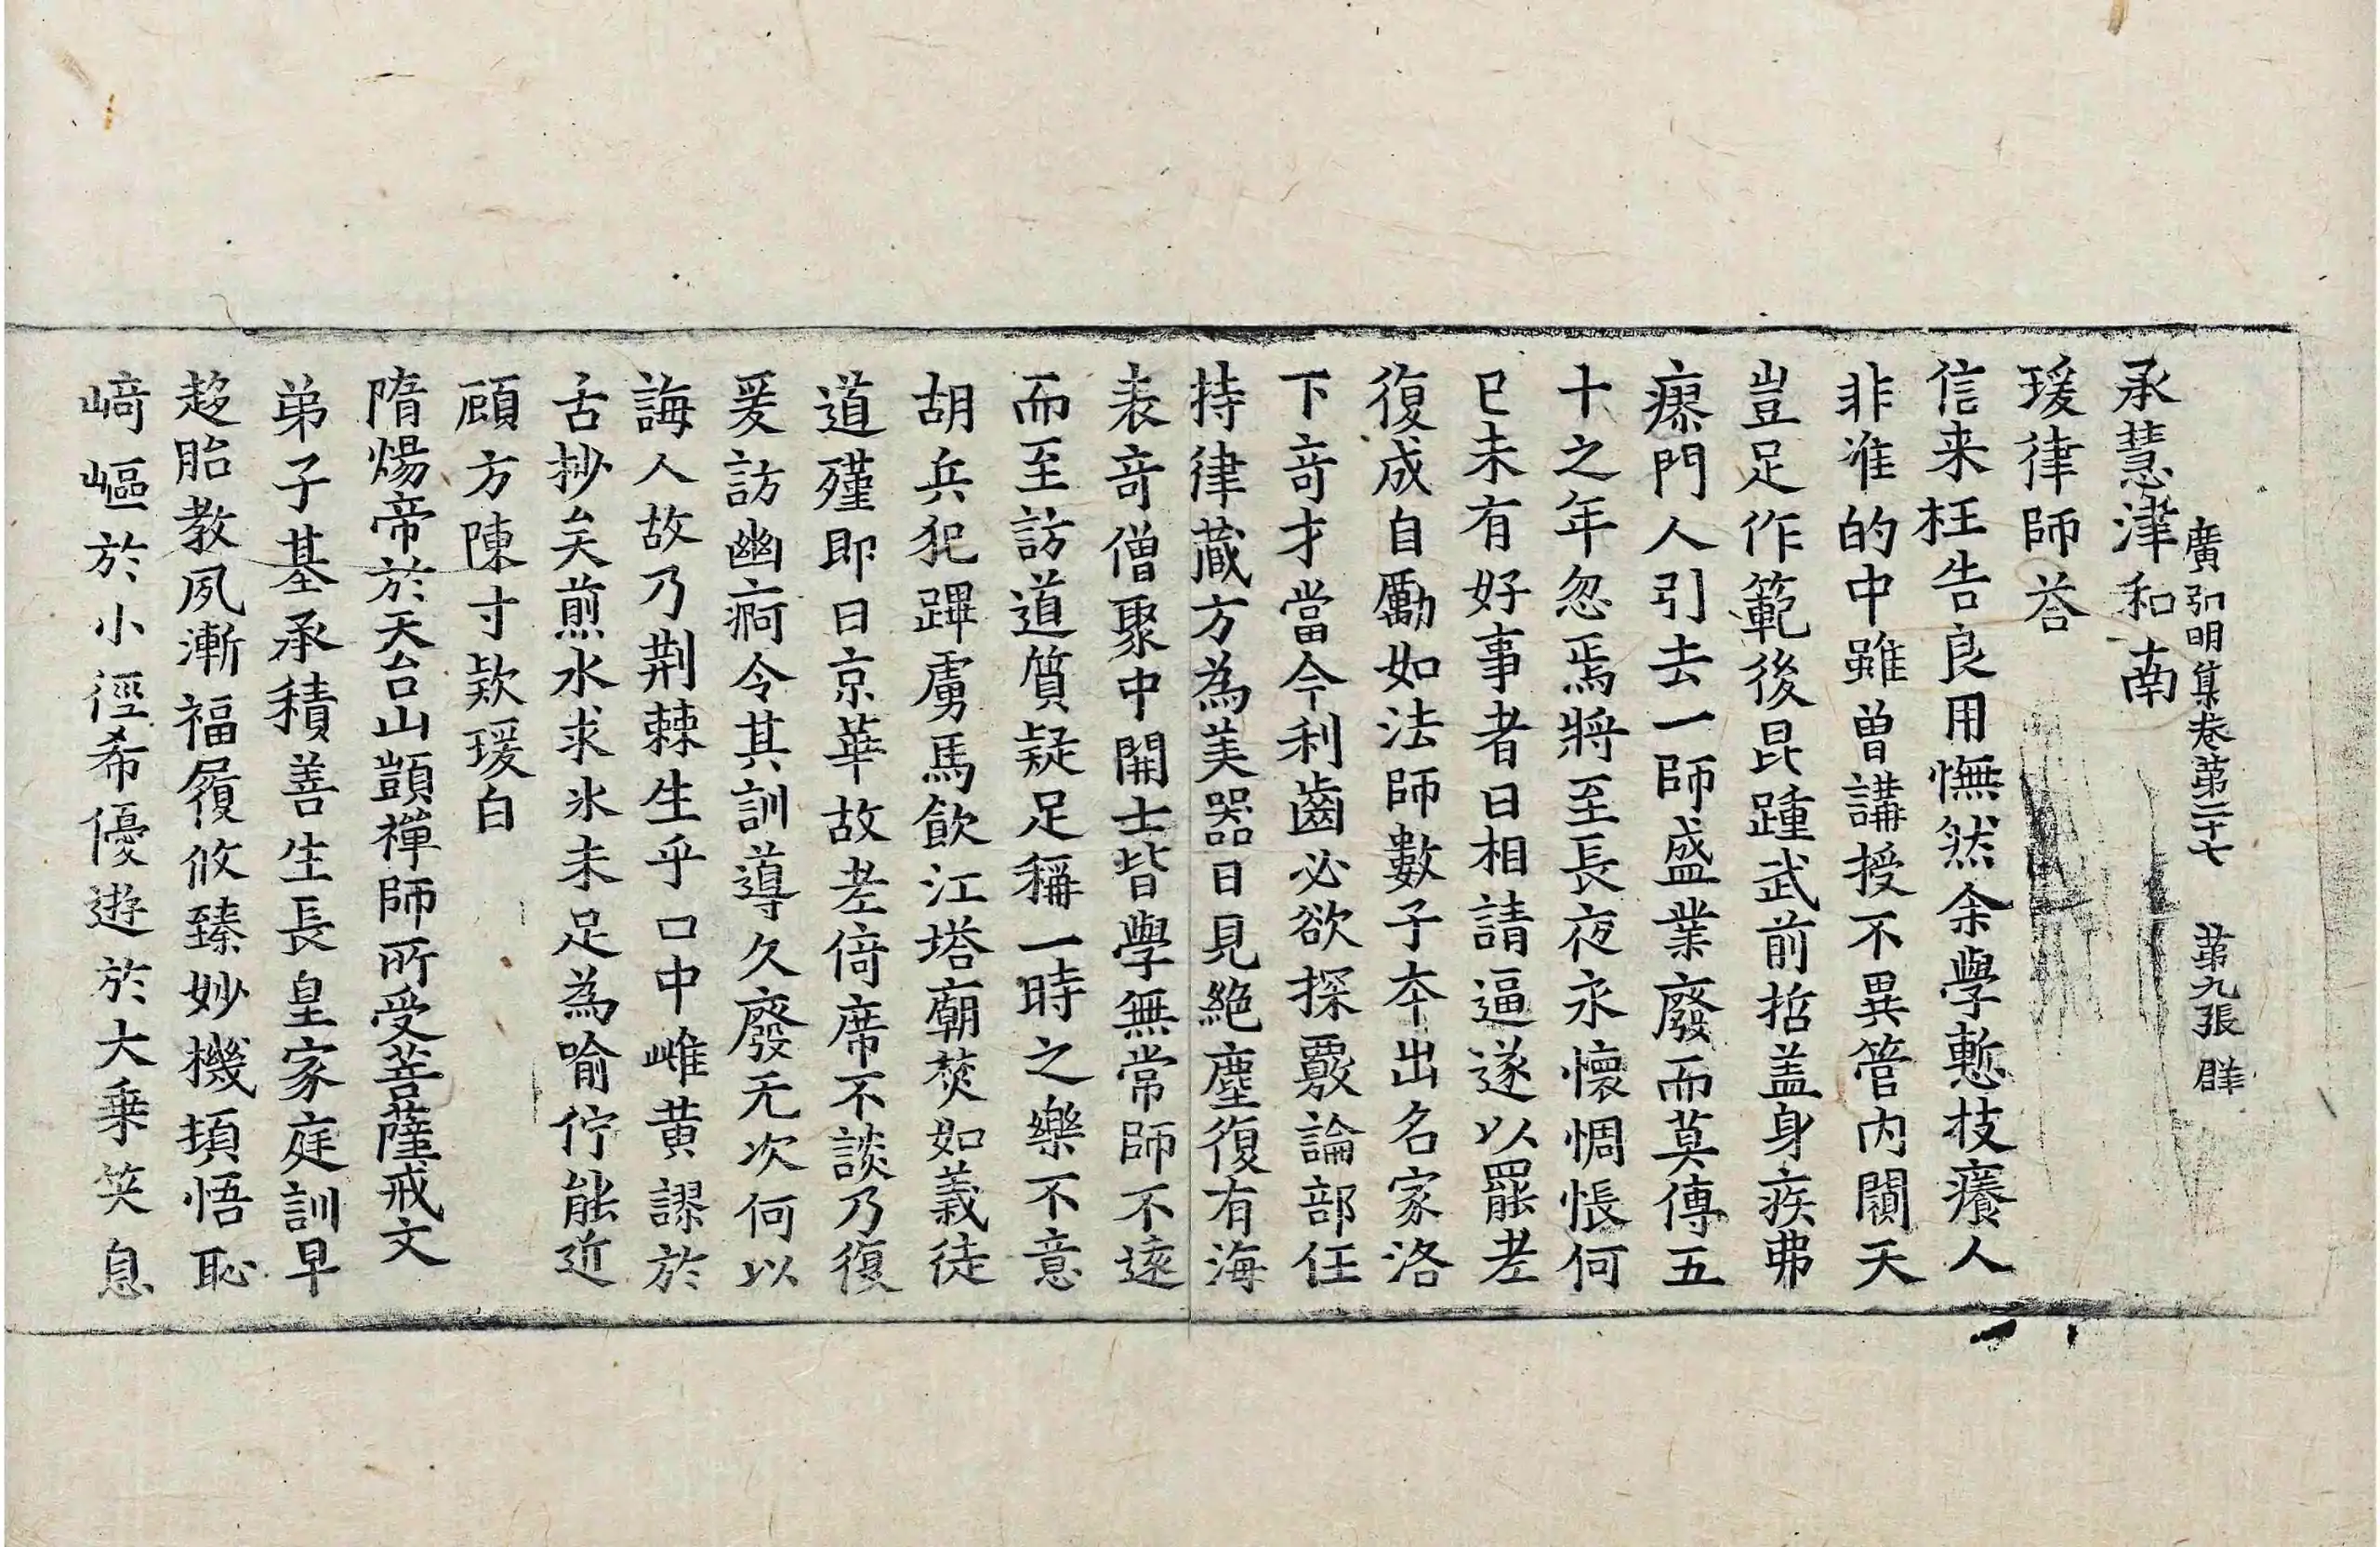 承慧津和南
廣弘明集卷第二十七 第九張 群
瑗律師荅
信来枉告良用憮然余學慙技癢人
非准的中雖曾講授不異管内闚天
豈足作範後昆踵武前哲盖身疾弗
瘳門人引去一師盛業廢而莫傳五
十之年忽焉將至長夜永懷惆悵何
已未有好事者日相請逼遂以罷老
復成自勵如法師數子夲出名家洛
下竒才當今利齒必欲探覈論部任
持律藏方為美器日見絶塵復有海
表竒僧聚中開士皆學無常師不遠
而至訪道質疑足稱一時之樂不意
胡兵犯蹕虜馬飲江塔廟焚如義徒
道殣即日京華故老倚席不談乃復
爰訪幽痾令其訓導久廢无次何以
誨人故乃荆棘生乎口中雌黄謬於
舌抄矣煎水求氷未足為喻佇能近
顧方陳寸款瑗白
隋煬帝於天台山顗禪師所受菩薩戒文
弟子基承積善生長皇家庭訓早
趍胎教夙漸福履攸臻妙機頊悟恥
﨑嶇於小徑希優遊於大乗笑息